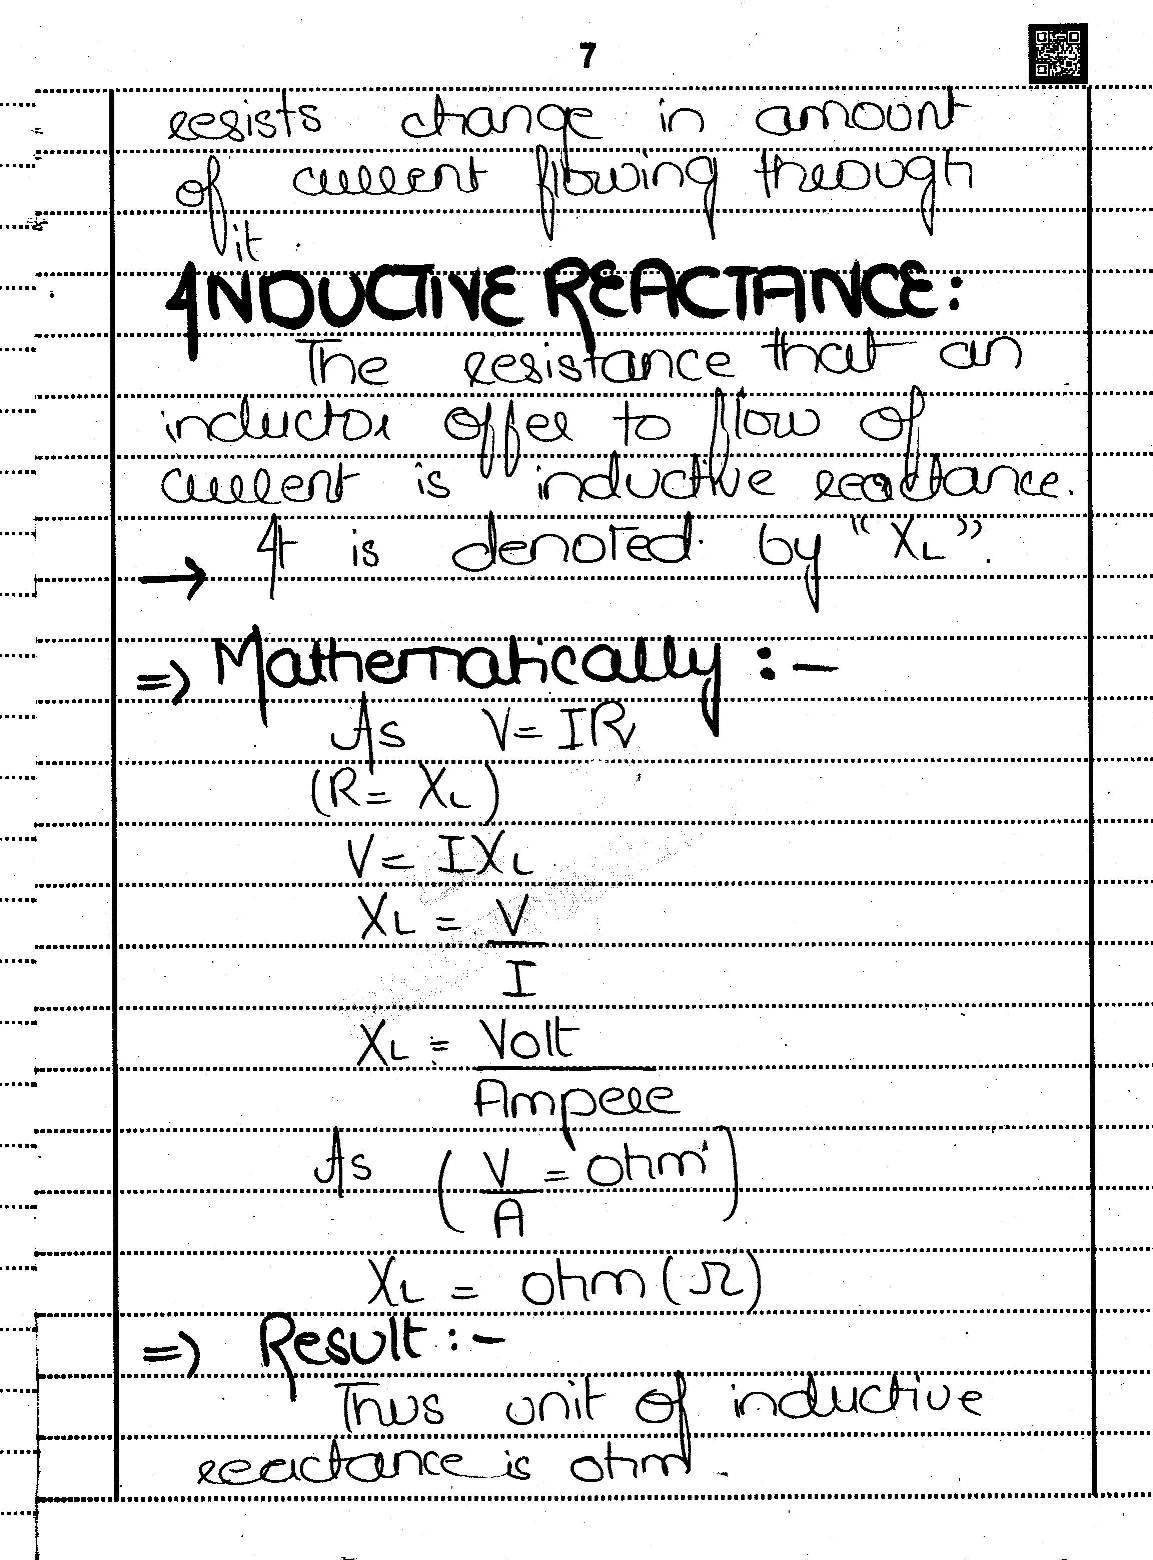 7
resists change in amount
of current flowing through
it.
INDUCTIVE REACTANCE:
The resistance that an
inductor offer to flow of
current is inductive reactance.
→ It is denoted by "XL".
=> Mathematically :-
As V = IR
(R = XL)
V = IXL
XL = V
I
XL = Volt
Ampere
As (V = ohm)
A
XL = ohm (Ω)
=> Result :-
Thus unit of inductive
reactance is ohm.